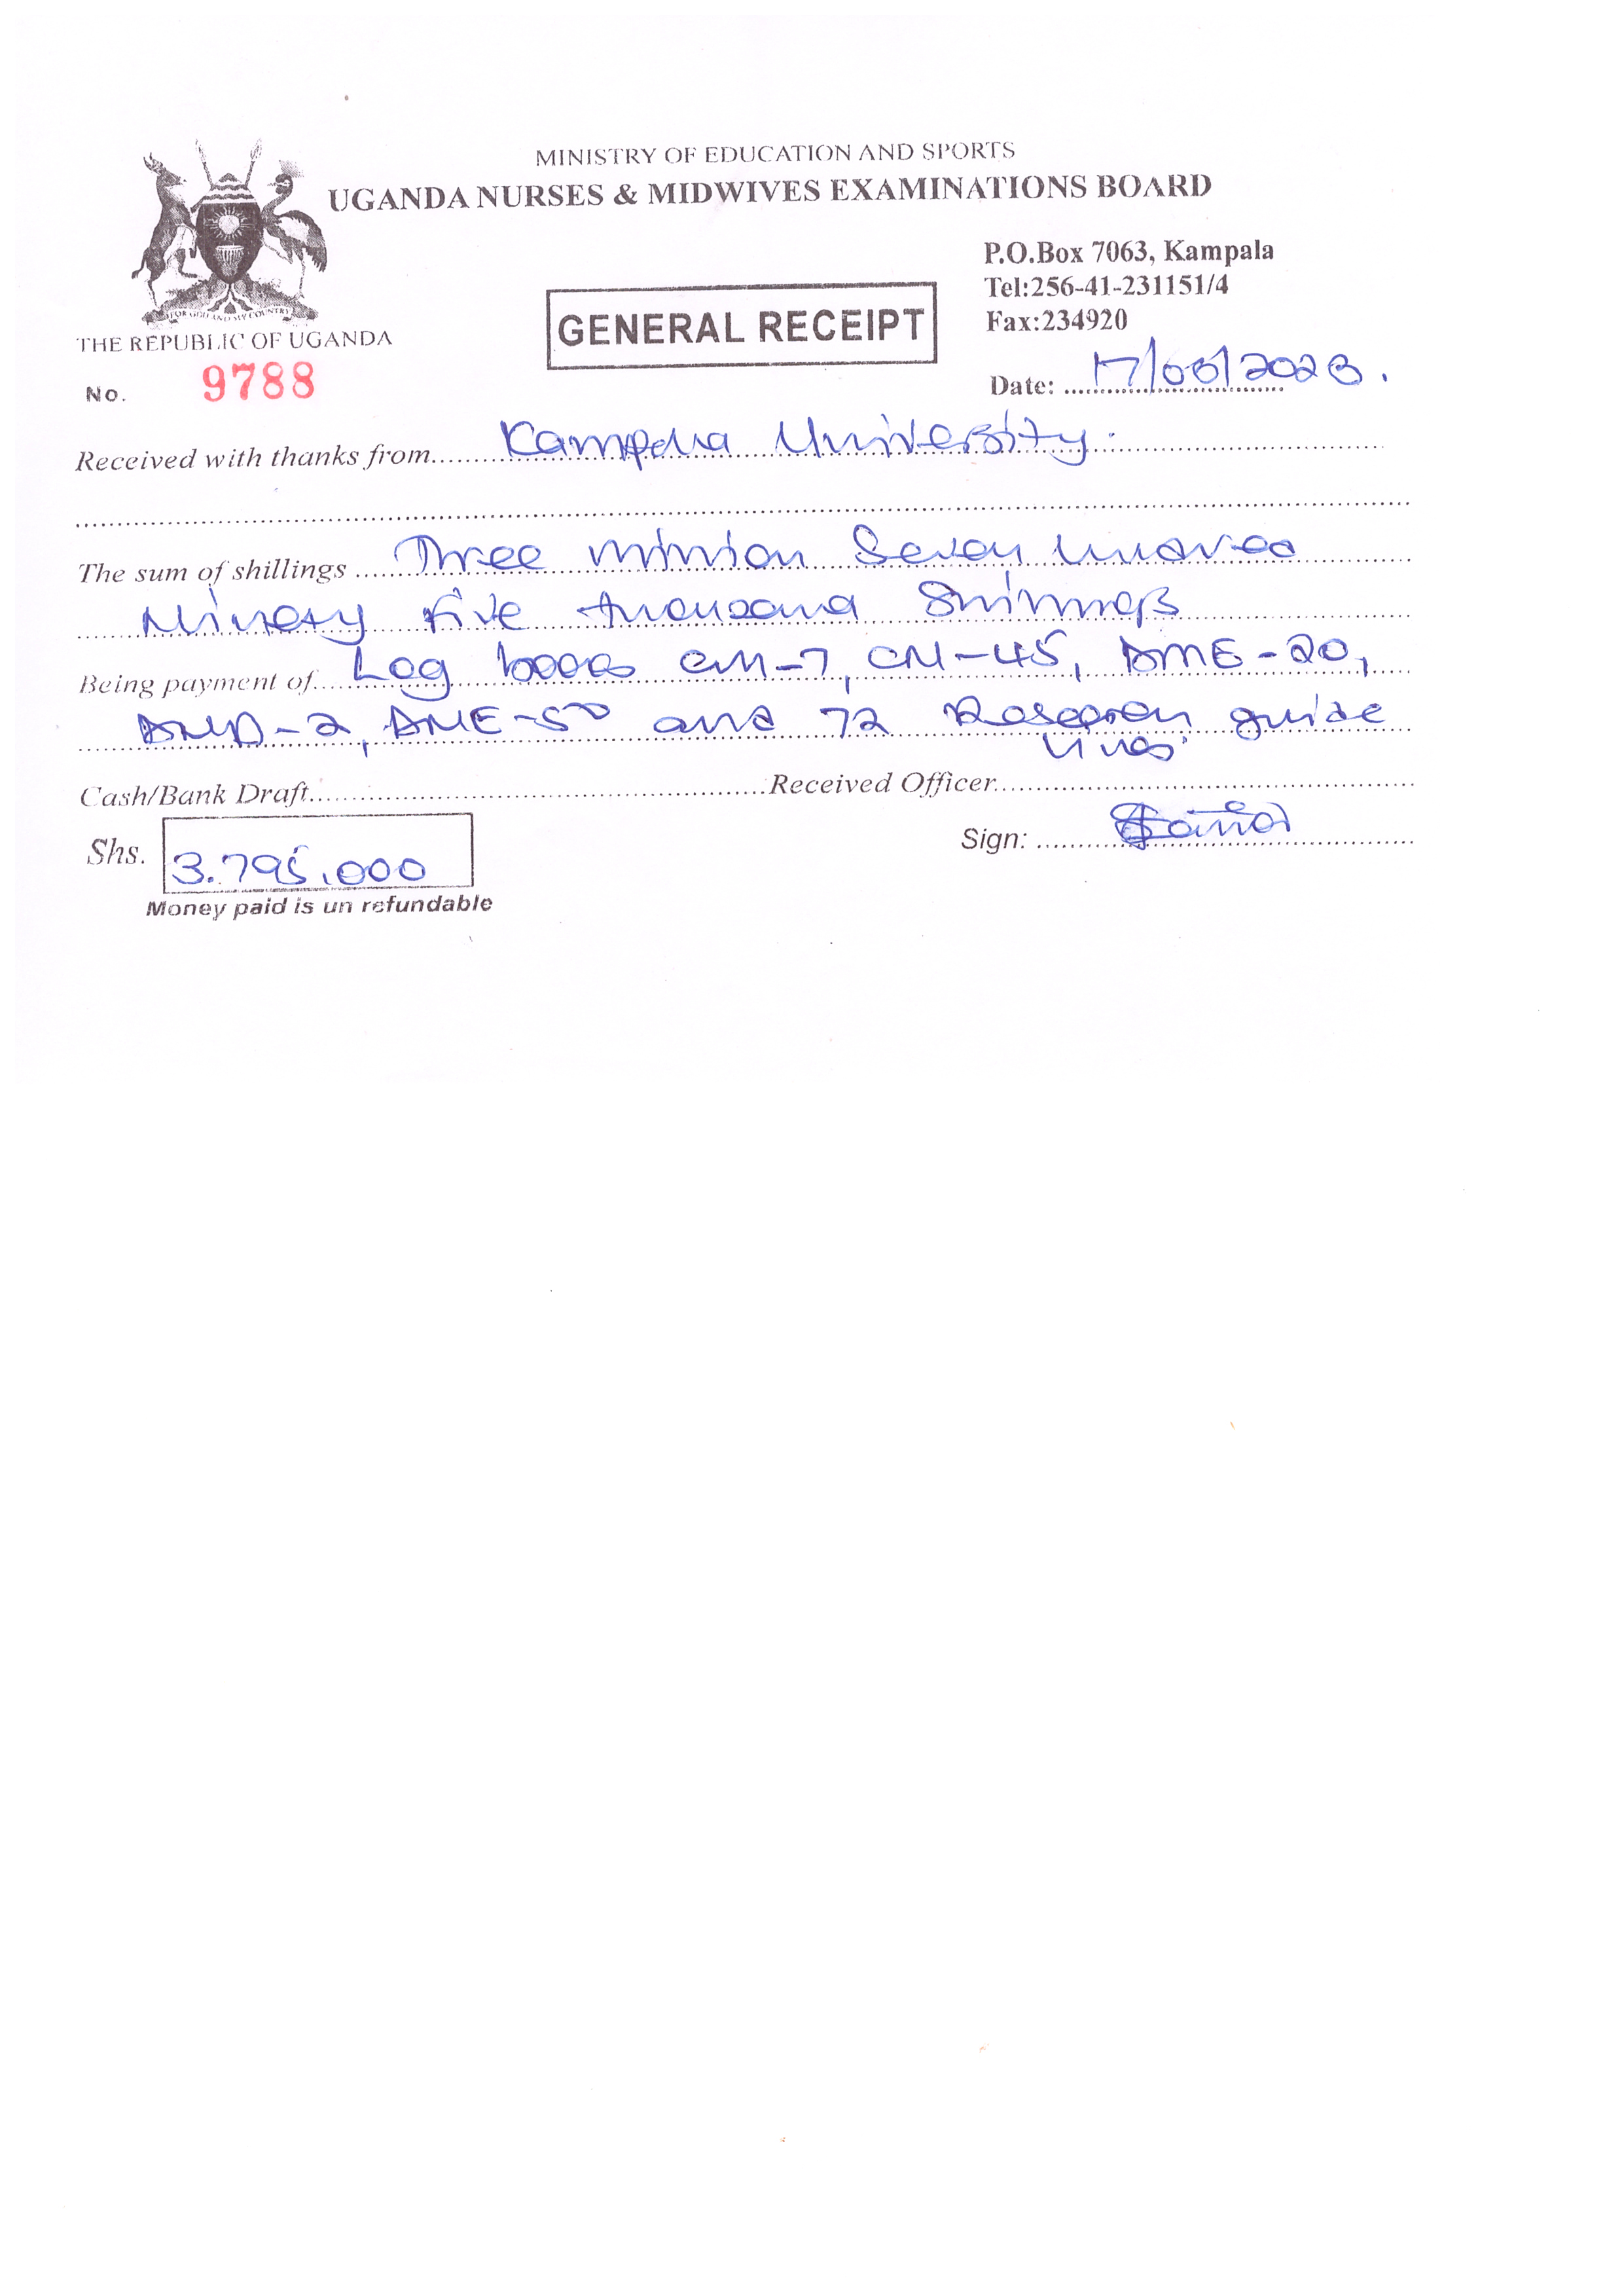 MINISTRY OF EDUCATION AND SPORTS
UGANDA NURSES & MIDWIVES EXAMINATIONS BOARD
P.O.Box 7063, Kampala
Tel:256-41-231151/4
Fax:234920
GENERAL RECEIPT
FOR GOD AND MY COUNTRY
THE REPUBLIC OF UGANDA
No. 9788
Date: 17/05/2023.
Received with thanks from Kampala University.
The sum of shillings Three million Seven hundred
Ninety five thousand Shillings
Being payment of Log books CM-7, CN-45, DME-20,
DND-2, DNE-50 and 72 Research guide
lines.
Cash/Bank Draft Received Officer
Shs. 3.795.000
Sign:
Money paid is un refundable